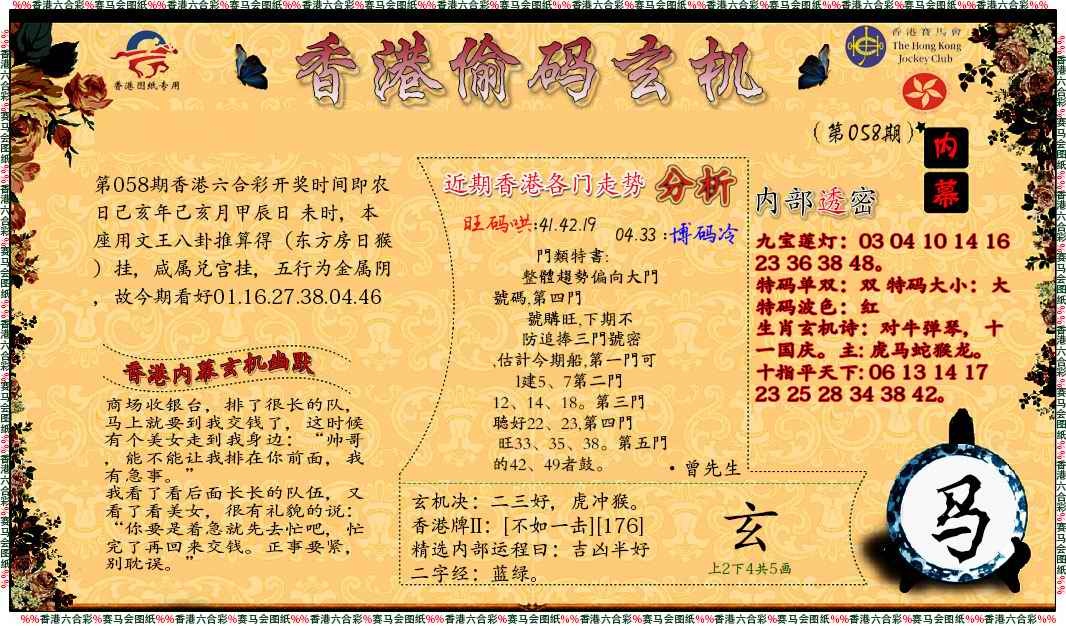 %%香港六合彩%赛马会图纸%%香港六合彩%赛马会图纸%%香港六合彩%赛马会图纸%%香港六合彩%赛马会图纸%%香港六合彩%赛马会图纸%%香港六合彩%赛马会图纸%%香港六合彩%赛马会图纸%%
香港图纸专用
香港偷码玄机
香港賽馬會
The Hong Kong
Jockey Club
（第058期）
内
幕
第058期香港六合彩开奖时间即农
日己亥年己亥月甲辰日 未时，本
座用文王八卦推算得（东方房日猴
）挂，咸属兑宫挂，五行为金属阴
，故今期看好01.16.27.38.04.46
香港内幕玄机幽默
商场收银台，排了很长的队，
马上就要到我交钱了，这时候
有个美女走到我身边：“帅哥
，能不能让我排在你前面，我
有急事。”
我看了看后面长长的队伍，又
看了看美女，很有礼貌的说：
“你要是着急就先去忙吧，忙
完了再回来交钱。正事要紧，
别耽误。”
近期香港各门走势 分析
旺码哄:41.42.19
04.33 :博码冷
門類特書:
整體趨勢偏向大門
號碼,第四門
號購旺,下期不
防追捧三門號密
,估計今期船,第一門可
1建5、7第二門
12、14、18。第三門
聰好22、23,第四門
旺33、35、38。第五門
的42、49者鼓。
·曾先生
内部透密
九宝莲灯：03 04 10 14 16
23 36 38 48。
特码单双：双 特码大小：大
特码波色：红
生肖玄机诗：对牛弹琴，十
一国庆。主: 虎马蛇猴龙。
十指平天下: 06 13 14 17
23 25 28 34 38 42。
玄机决：二三好，虎冲猴。
香港牌II：[不如一击][176]
精选内部运程日：吉凶半好
二字经：蓝绿。
玄
上2下4共5画
马
%%香港六合彩%赛马会图纸%%香港六合彩%赛马会图纸%%香港六合彩%赛马会图纸%%香港六合彩%赛马会图纸%%香港六合彩%赛马会图纸%%香港六合彩%赛马会图纸%%香港六合彩%赛马会图纸%%